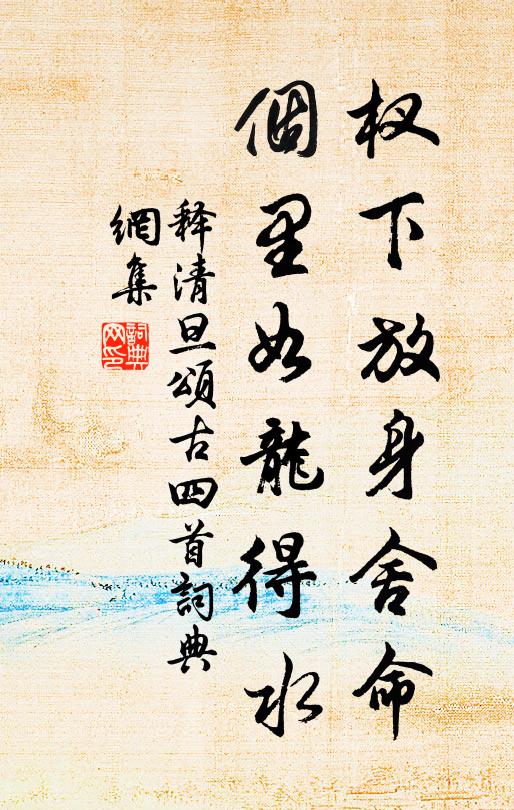 杈下放身舍命
個里如龍得水
释清旦頌古四首詞典
網集
詞典
网印